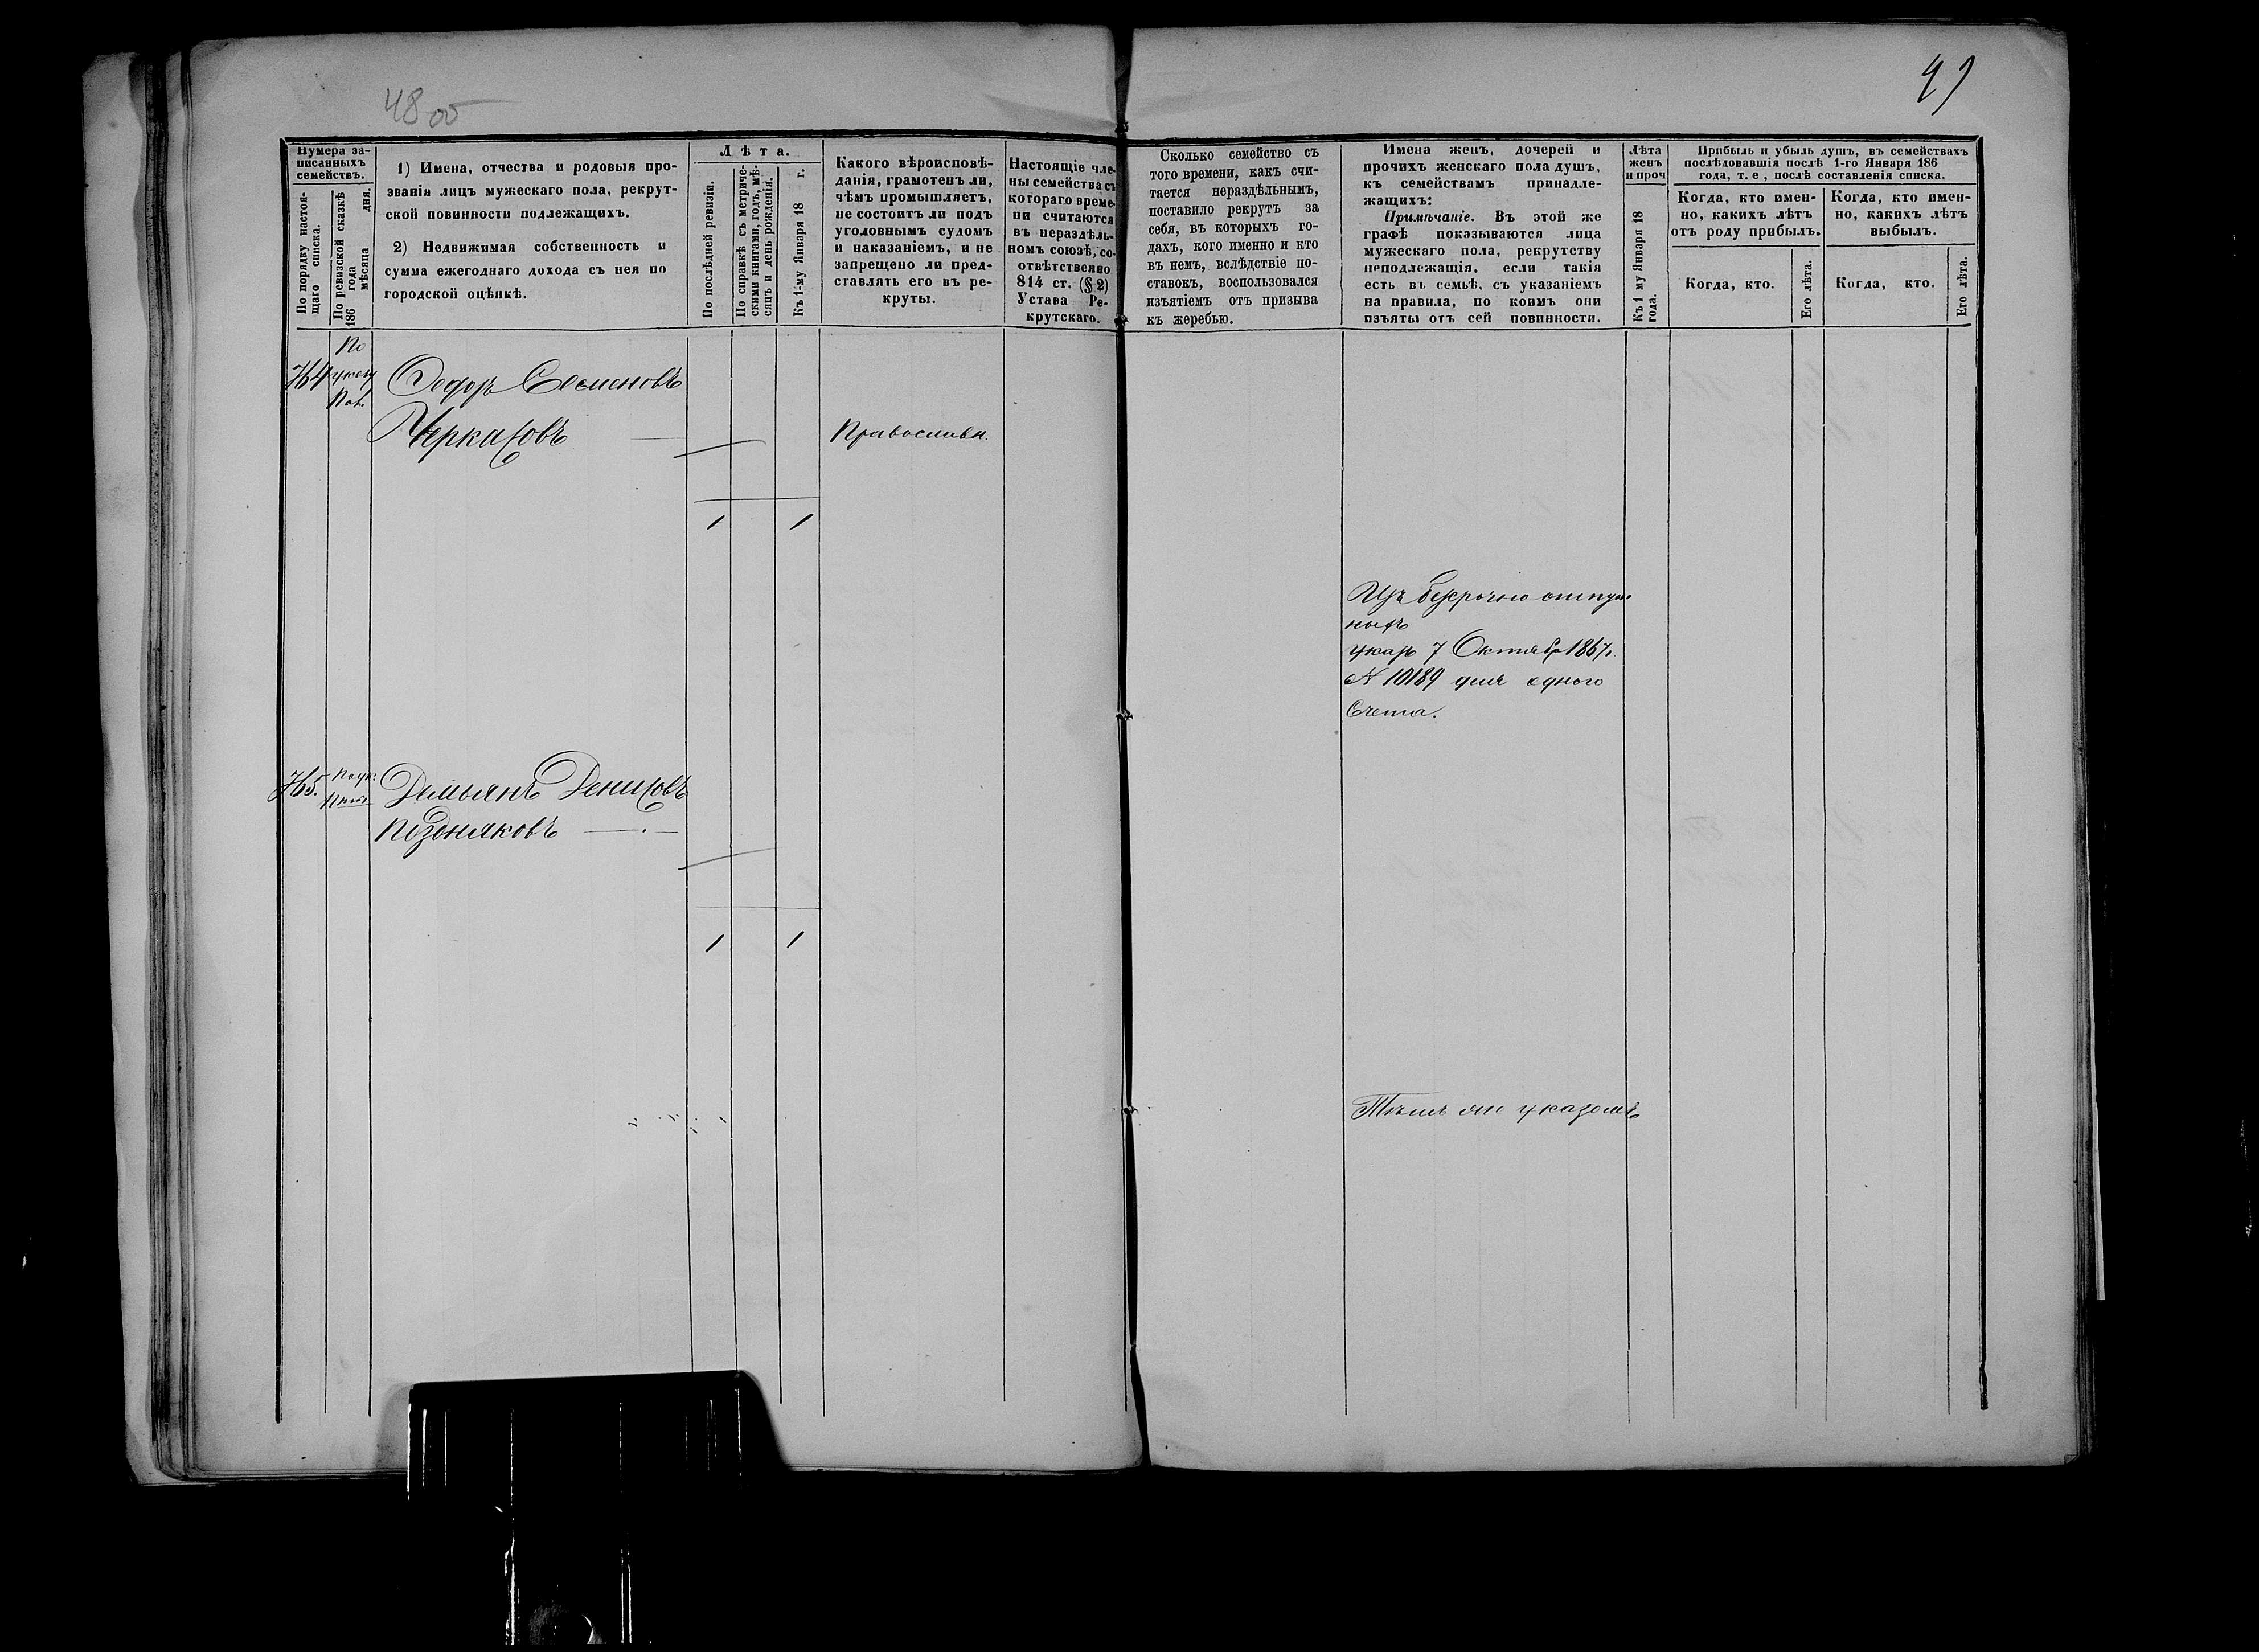 48 об
Нумера за-
писанныхъ
семействъ.
По порядку настоя-
щаго списка.
По ревизской сказкѣ
186 года
мѣсяца дня.
1) Имена, отчества и родовыя про-
званія лицъ мужескаго пола, рекрут-
ской повинности подлежащихъ.
2) Недвижимая собственность и
сумма ежегоднаго дохода съ нея по
городской оцѣнкѣ.
Лѣта.
По послѣдней ревизіи.
По справкѣ съ метриче-
скими книгами, годъ, мѣ-
сяцъ и день рожденія.
Къ 1-му Января 18 г.
Какого вѣроисповѣ-
данія, грамотенъ ли,
чѣмъ промышляетъ,
не состоитъ ли подъ
уголовнымъ судомъ
и наказаніемъ, и не
запрещено ли пред-
ставлять его въ ре-
круты.
Настоящіе чле-
ны семейства съ
котораго време-
ни считаются
въ нераздѣль-
номъ союзѣ, со-
отвѣтственно
814 ст. (§ 2)
Устава Ре-
крутскаго.
По
указу
Пал.
Федоръ Семеновъ
Черкасовъ
Православн.
1 1
Демьянъ Денисовъ
Поздняковъ
1 1
Сколько семейство съ
того времени, какъ счи-
тается нераздѣльнымъ,
поставило рекрутъ за
себя, въ которыхъ го-
дахъ, кого именно и кто
въ немъ, вслѣдствіе по-
ставокъ, воспользовался
изъятіемъ отъ призыва
къ жеребью.
Имена женъ, дочерей и
прочихъ женскаго пола душъ,
къ семействамъ принадле-
жащихъ:
Примѣчаніе. Въ этой же
графѣ показываются лица
мужескаго пола, рекрутству
неподлежащія. если такія
есть въ семьѣ, съ указаніемъ
на правила, по коимъ они
изъяты отъ сей повинности.
Лѣта
женъ
и проч
Къ 1 му Января 18
года.
Прибыль и убыль душъ, въ семействахъ
послѣдовавшія послѣ 1-го Января 186
года, т. е, послѣ составленія списка.
Когда, кто имен-
но, какихъ лѣтъ
отъ роду прибылъ.
Когда, кто имен-
но, какихъ лѣтъ
выбылъ.
Когда, кто.
Его лѣта.
Когда, кто.
Его лѣта.
Изъ безсрочно отпуск
ныхъ
указъ 7 Октября 1867г.
№ 10189 для одного
Счета.
Тѣмъ же указомъ